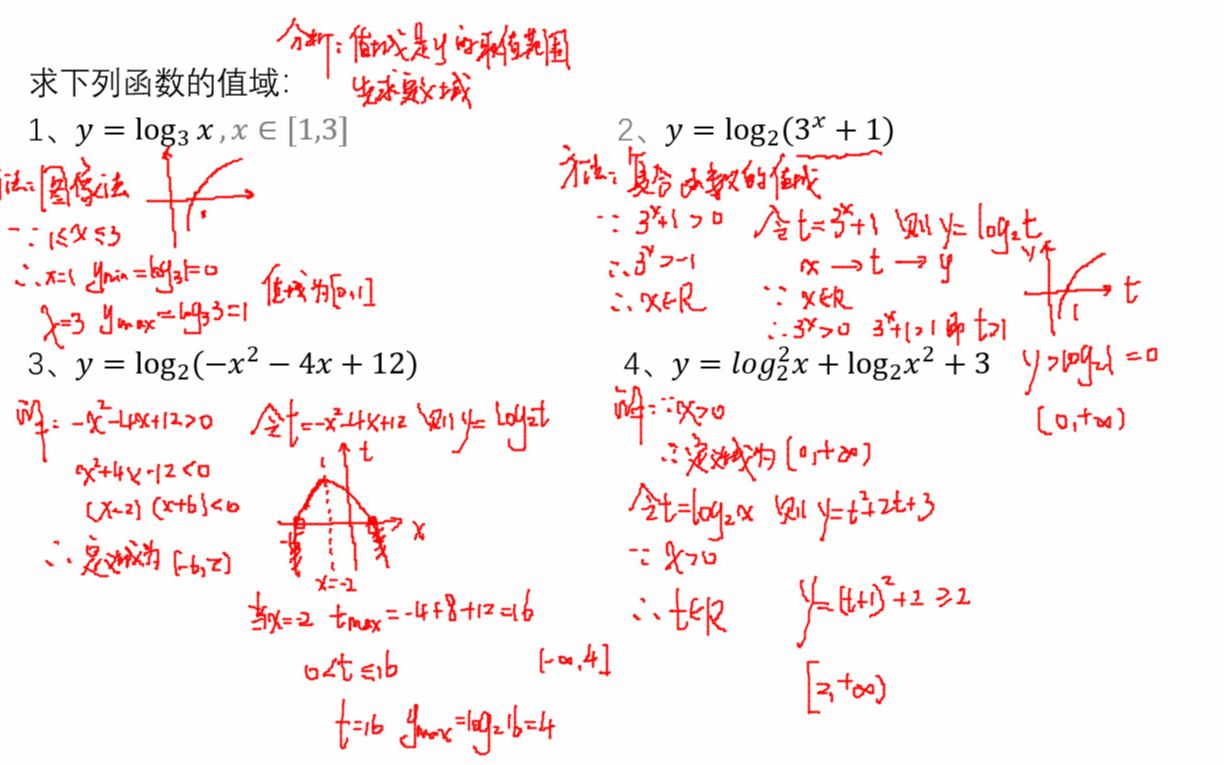 分析：值域是y的取值范围
先求定义域
求下列函数的值域：
1、y = log₃ x , x ∈ [1,3]
方法：图像法
∵ 1≤x≤3
∴ x=1 ymin=log₃1=0
x=3 ymax=log₃3=1
值域为[0,1]
2、y = log₂(3ˣ + 1)
方法：复合函数的值域
∵ 3ˣ+1>0 令t=3ˣ+1 则y=log₂t
∴ 3ˣ>-1 x→t→y
∴ x∈R ∵ x∈R
∴ 3ˣ>0 3ˣ+1>1 即t>1
y t
1
y>log₂1=0
(0,+∞)
3、y = log₂(−x² − 4x + 12)
解：-x²-4x+12>0 令t=-x²-4x+12 则y=log₂t
x²+4x-12<0
(x-2)(x+6)<0
∴ 定义域为(-6,2)
t
x
-6
x=-2
当x=-2 tmax=-4+8+12=16
0<t≤16
(-∞,4]
t=16 ymax=log₂16=4
4、y = log₂²x + log₂x² + 3
解：∵x>0
∴定义域为(0,+∞)
令t=log₂x 则y=t²+2t+3
∵ x>0
∴ t∈R y=(t+1)²+2≥2
[2,+∞)